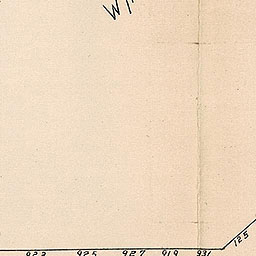 923 925 927 919 931
125